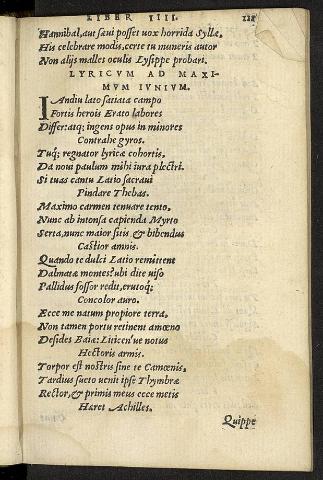 LIBER IIII. 121
Hannibal, aut sæui posset uox horrida Syllæ,
His celebrare modis, certe tu muneris autor
Non alijs malles oculis Lysippe probari.
LYRICVM AD MAXI-
MVM IVNIVM.
IAndiu lato satiata campo
Fortis herois Erato labores
Differ: atq; ingens opus in minores
Contrahe gyros.
Tuq; regnator lyricæ cohortis,
Da noui paulum mihi iura plectri.
Si tuas cantu Latio sacraui
Pindare Thebas.
Maximo carmen tenuare tento,
Nunc ab intonsa capienda Myrto
Serta, nunc maior sitis & bibendus
Castior amnis.
Quando te dulci Latio remittent
Dalmatæ montes? ubi dite uiso
Pallidus fossor redit, erutoq;
Concolor auro.
Ecce me natum propiore terra,
Non tamen portu retinent amœno
Desides Baiæ: Liticen'ue notus
Hectoris armis.
Torpor est nostris sine te Camœnis,
Tardius sueto uenit ipse Thymbræ
Rector, & primis meus ecce metis
Hæret Achilles.
Quippe